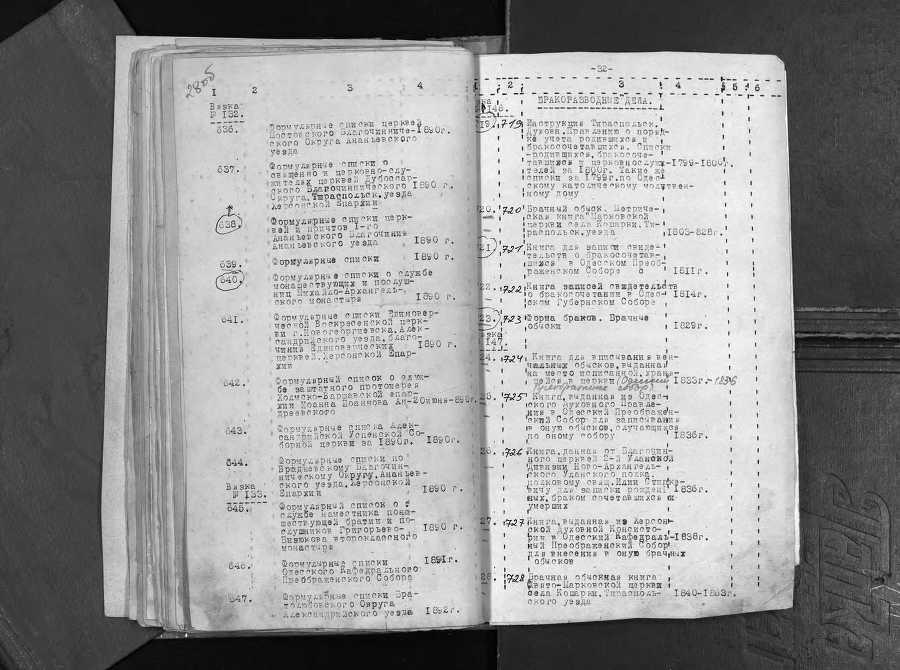 280б
1 2 3 4
Вязка
№ 132.
636. Формулярные списки церквей
Постовского Благочинниче- 1890г.
ского Округа Ананьевского
уезда
637. Формулярные списки о
священно и церковно-слу-
жителях церквей Дубоссар-
ского Благочиннического 1890 г.
Округа, Тираспольск.уезда
Херсонской Епархии
638. Формулярные списки церк-
вей и причтов I-го
Ананьевского Благочиния
Ананьевского уезда 1890 г.
639. Формулярные списки 1890 г.
640. Формулярные списки о службе
монашествующих и послуш-
ниц Михайло-Архангель-
ского монастыря 1890 г.
641. Формулярные списки Единовер-
ческой Воскресенской церк-
ви г.Новогеоргиевска, Алек-
сандрийского уезда, благо-
чиния Единоверческих 1890 г.
церквей, Херсонской Епар-
хии
642. Формулярный список о служ-
бе заштатного протоиерея
Холмско-Варшавской епар-
хии Иоанна Иоаннова Ан- 20июня-890г.
дреевского
643. Формулярные списка Алек-
сандрийской Успенской Со-
борной церкви за 1890г. 1890г.
644. Формулярные списки по
Врадиевскому Благочин-
ническому Округу, Ананьев-
ского уезда, Херсонской
Епархии 1890 г.
Вязка
№ 133.
645. Формулярный список о
службе наместника мона-
шествующей братии и по-
слушников Григорьево- 1890 г.
Бизюкова второклассного
монастыря
646. Формулярные списки 1891г.
Одесского Кафедрального
Преображенского Собора
647. Формулярные списки Бра-
толюбовского Округа
Александрийского уезда 1892г.
-32-
2 3 4 5 6
146. БРАКОРАЗВОДНЫЕ ДЕЛА.
19. 719 Инструкция Тираспольск.
Духовн.Правлению о поряд-
ке учета родившихся и
бракосочетавшихся. Списки
родившихся, бракосоче-
тавшихся и церковнослужи- 1799-1800г.
телей за 1800г. Такие же
списки за 1799г.по Одес-
скому католическому молитвен-
ному дому
20. 720 Брачный обыск. Метриче-
ская книга Марковской
церкви села Кошарки, Ти-
распольск.уезда 1803-828г.
21. 721 Книга для записи свиде-
тельств о бракосочетав-
шихся в Одесском Преоб-
раженском Соборе 1811г.
22. 722 Книга записей свидетельств
о бракосочетании в Одес- 1814г.
ском Губернском Соборе
23. 723 Форма браков. Брачные
обыски 1829г.
147.
24. 724 Книга для вписывания вен-
чальных обысков, выданная
на место исписанной, храня-
щейся в церкви (Одесский 1833г.-1836
Преображенс собор)
25. 725 Книга, выданная из Одес-
ского Духовного Правле-
ния в Одесский Преображен-
ский Собор для записывания
в оную обысков, случающихся
по оному собору 1835г.
26. 726 Книга, данная от Благочин-
ного церквей 2-й Уланской
дивизии Ново-Архангель-
ского Уланского полка,
полковому свящ.Илии Стыпке-
вичу для записки рождени 1836г.
ных, браком сочетавшихся и
умерших
27. 727 Книга, выданная из Херсон-
ской Духовной Консисто-
рии в Одесский Кафедраль- 1838г.
ный Преображенский Собор
для внесения в оную брачных
обысков
28. 728 Брачная обыскная книга
Свято-Марковской церкви
села Кошарки, Тирасполь- 1840-1853г.
ского уезда